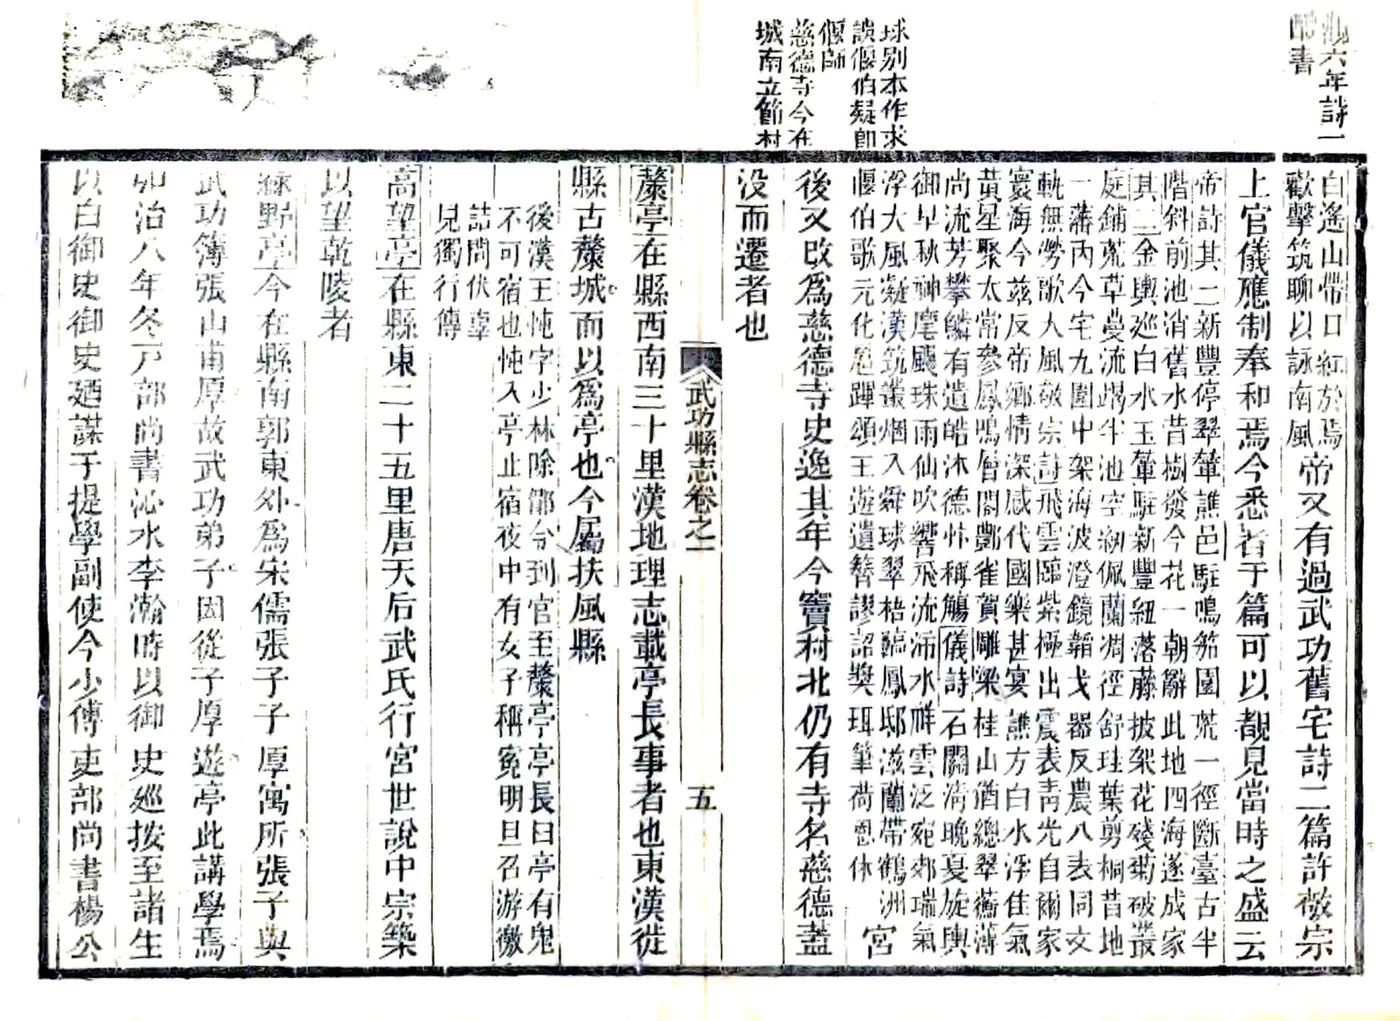 觀六年詩一
酷書
球别本作求
誤偃伯疑即
偃師
慈德寺今在
城南立節村
白遙山帶日紅於焉
歡擊筑聊以詠南風
帝又有過武功舊宅詩二篇許敬宗
上官儀應制奉和焉今悉著于篇可以覩見當時之盛云
帝詩其一新豐停翠輦譙邑駐鳴笳園荒一徑斷臺古半
階斜前池消舊水昔樹發今花一朝辭此地四海遂成家
其二金輿巡白水玉輦駐新豐紐落藤披架花殘菊破叢
庭鋪荒草蔓流竭半池空紉佩蘭凋徑舒珪葉剪桐昔地
一藩内今宅九圍中架海波澄鏡韜戈器反農八表同文
軌無勞歌大風敬宗詩飛雲臨紫極出震表青光自爾家
寰海今兹反帝鄉情深感代國樂甚宴譙方白水浮佳氣
黄星聚太常參鳳鳴層閣酆雀賀雕梁桂山猶總翠蘅薄
尚流芳攀鱗有遺皓沐德忭稱觴儀詩石關清晚夏旋輿
御早秋神麾颺珠雨仙吹響飛流沛水祥雲泛宛郊瑞氣
浮大風凝漢筑叢烟入舜球翠梧臨鳳邸滋蘭帶鶴洲
偃伯歌元化扈蹕頌王遊遺簪謬詔獎珥筆荷恩休
宮
後又改爲慈德寺史逸其年今竇村北仍有寺名慈德蓋
没而遷者也
武功縣志卷之一
五
斄亭在縣西南三十里漢地理志載亭長事者也東漢徙
縣古斄城而以爲亭也今屬扶風縣
後漢王忳字少林除郿令到官至斄亭亭長曰亭有鬼
不可宿也忳入亭止宿夜中有女子稱寃明旦召游徼
詰問伏辜
見獨行傳
高望亭在縣東二十五里唐天后武氏行宮世說中宗築
以望乾陵者
綠野亭今在縣南郭東外爲宋儒張子子厚寓所張子與
武功簿張山甫厚故武功弟子因從子厚遊亭此講學焉
弘治八年冬戸部尚書沁水李瀚時以御史巡按至諸生
以白御史御史廼謀于提學副使今少傅吏部尚書楊公